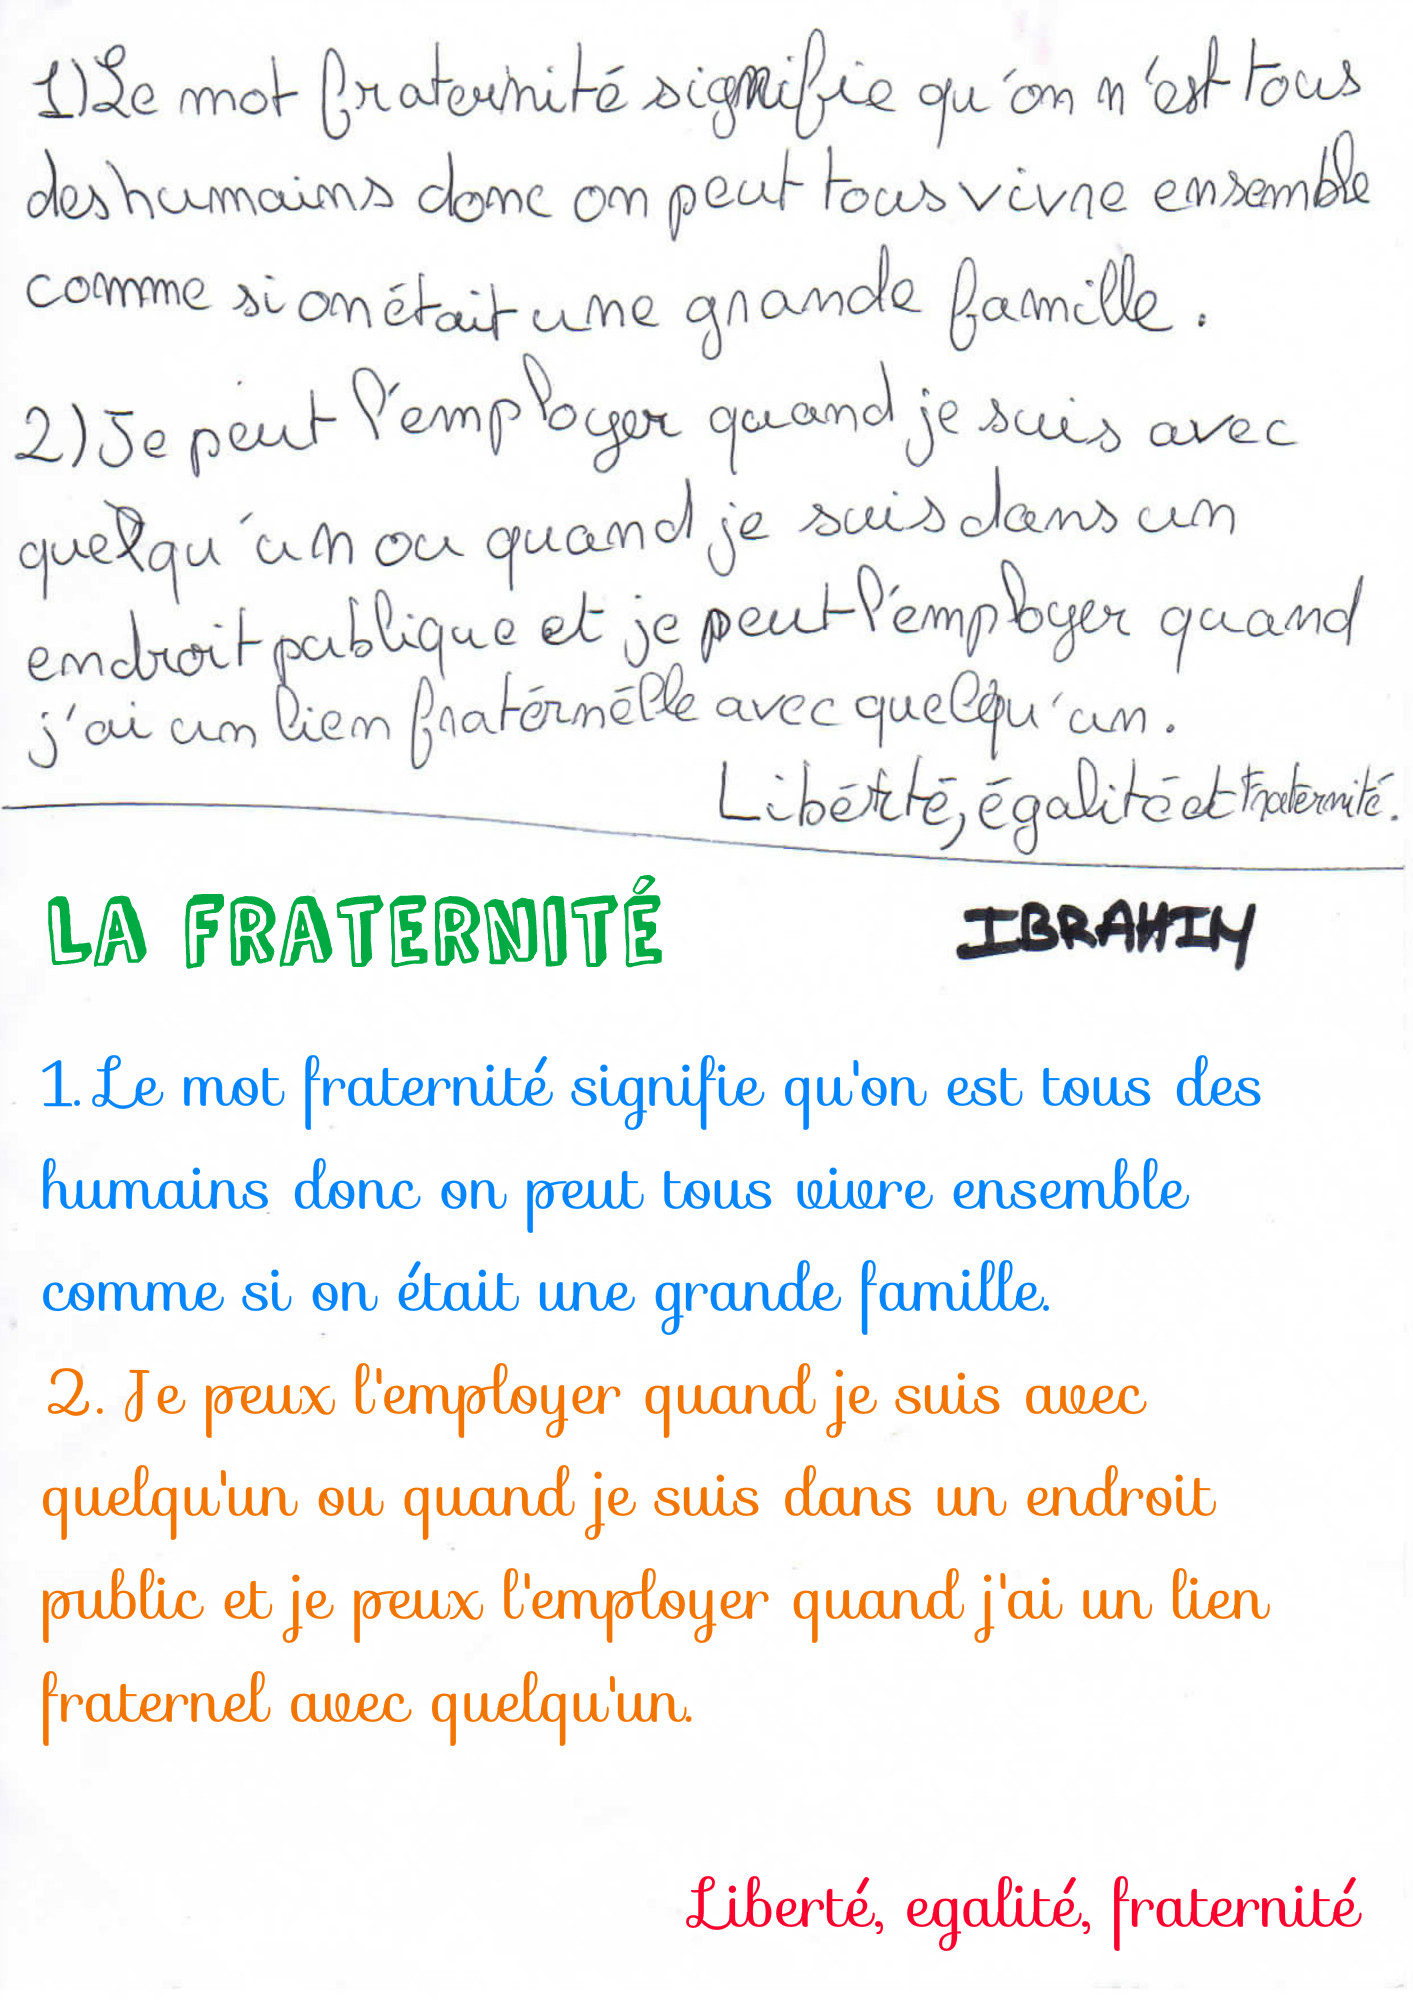 1) Le mot fraternité signifie qu'on n'est tous
des humains donc on peut tous vivre ensemble
comme si on était une grande famille.
2) Je peut l'employer quand je suis avec
quelqu'un ou quand je suis dans un
endroit publique et je peut l'employer quand
j'ai un lien fraternélle avec quelqu'un.
Liberté, égalité et Fraternité.
LA FRATERNITÉ IBRAHIM
1. Le mot fraternité signifie qu'on est tous des
humains donc on peut tous vivre ensemble
comme si on était une grande famille.
2. Je peux l'employer quand je suis avec
quelqu'un ou quand je suis dans un endroit
public et je peux l'employer quand j'ai un lien
fraternel avec quelqu'un.
Liberté, egalité, fraternité